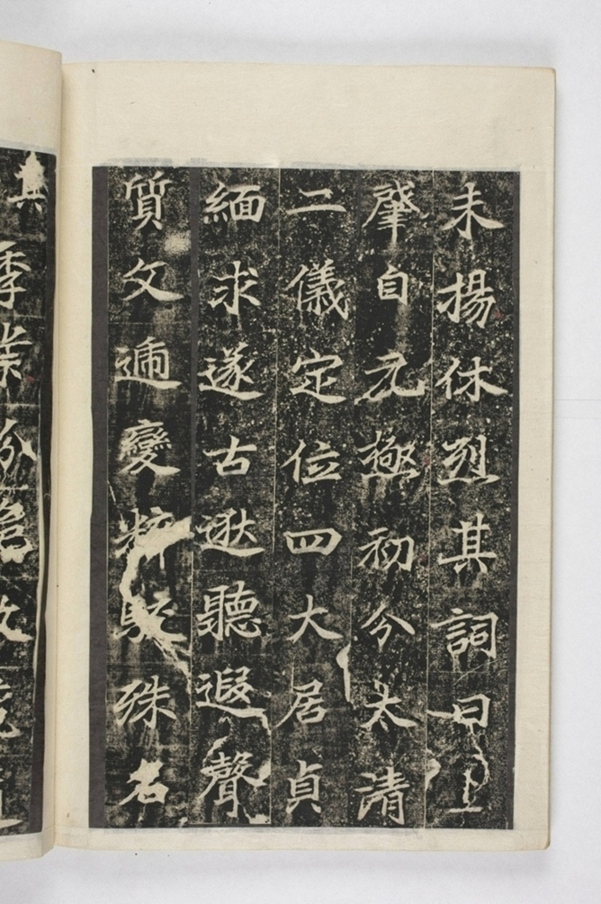 未揚休烈其詞曰上
肇自元極初分太清
二儀定位四大居貞
緬求遂古逖聽遐聲
質文遞變粹駁殊名